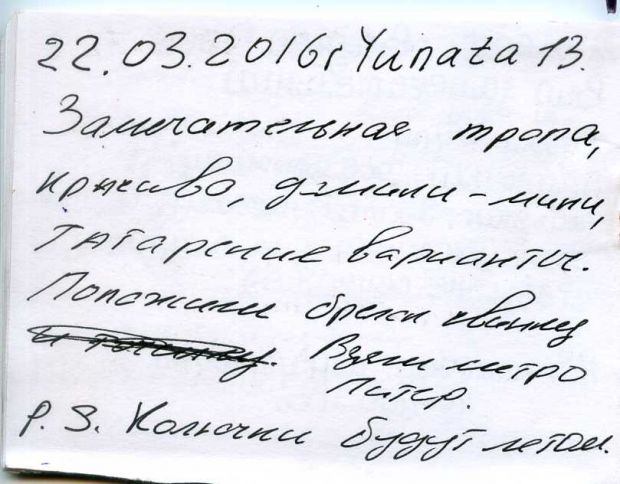 22.03.2016г Yunata 13.
Замечательная тропа,
красиво, джипи-мини,
татарские варианты.
Положили брелки
Взяли метро
Питер.
P.S. Колючки будут летом.